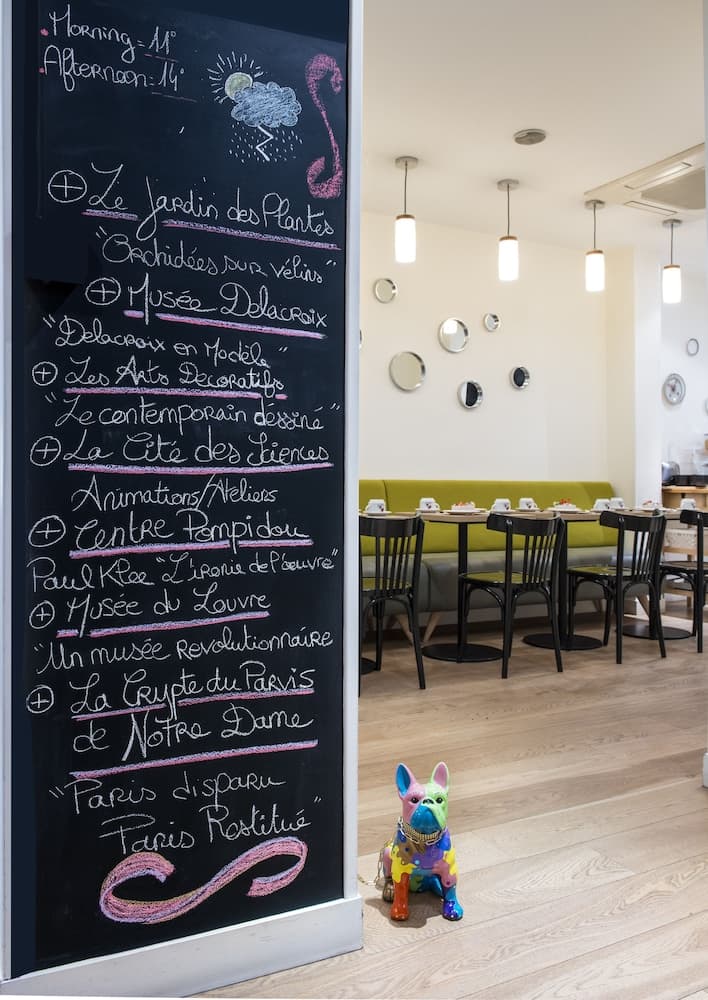 . Morning = 11°
. Afternoon = 14°
+ Le Jardin des Plantes
"Orchidées sur vélins"
+ Musée Delacroix
"Delacroix en Modèle"
+ Les Arts Decoratifs
"Le contemporain dessiné"
+ La Cité des Sciences
Animations/Ateliers
+ Centre Pompidou
Paul Klee "L'ironie de l'oeuvre"
+ Musée du Louvre
"Un musée Revolutionnaire
+ La Crypte du Parvis
de Notre Dame
"Paris disparu
Paris Restitué"